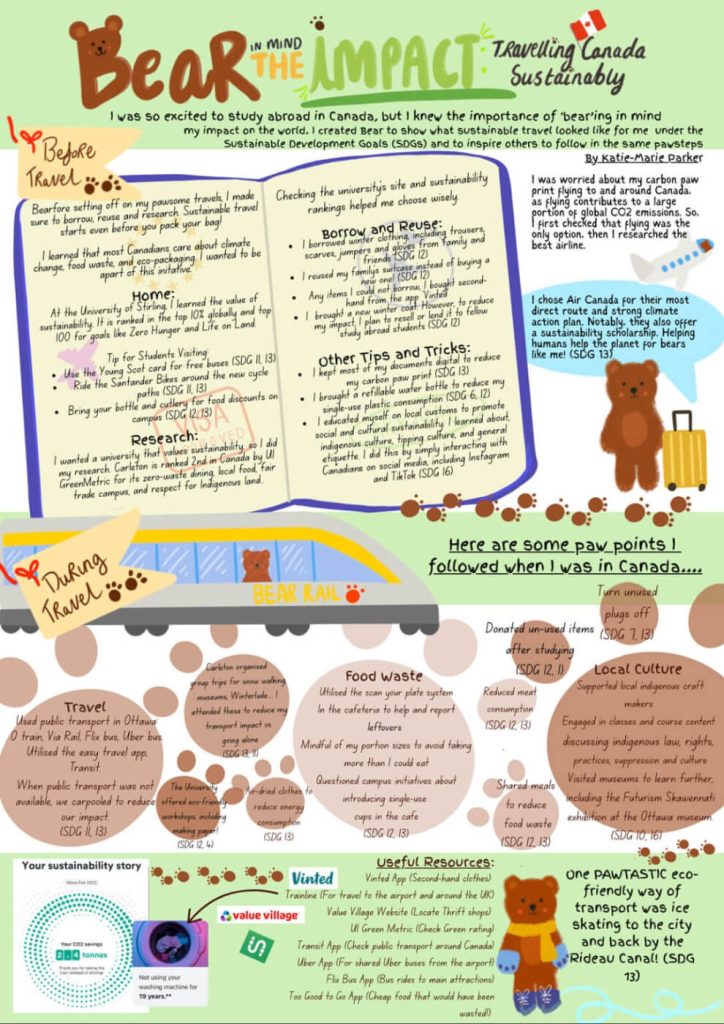 BeaR IN MIND THE IMPACT: Travelling Canada Sustainably
I was so excited to study abroad in Canada, but I knew the importance of 'bear'ing in mind
my impact on the world. I created Bear to show what sustainable travel looked like for me under the
Sustainable Development Goals (SDGs) and to inspire others to follow in the same pawsteps
By Katie-Marie Parker
Before
Travel
Bearfore setting off on my pawsome travels, I made
sure to borrow, reuse and research. Sustainable travel
starts even before you pack your bag!
I learned that most Canadians care about climate
change, food waste, and eco-packaging. I wanted to be
apart of this initative.
Home:
At the University of Stirling, I learned the value of
sustainability. It is ranked in the top 10% globally and top
100 for goals like Zero Hunger and Life on Land
Tip for Students Visiting
Use the Young Scot card for free buses (SDG 11, 13)
• Ride the Santander Bikes around the new cycle
paths (SDG 11, 13)
• Bring your bottle and cutlery for food discounts on
campus (SDG 12, 13)
VISA
Research:
I wanted a university that values sustainability, so I did
my research. Carleton is ranked 2nd in Canada by UI
GreenMetric for its zero-waste dining, local food, fair
trade campus, and respect for Indigenous land.
Checking the university's site and sustainability
rankings helped me choose wisely.
Borrow and Reuse:
• I borrowed winter clothing, including trousers,
scarves, jumpers and gloves from family and
friends (SDG 12)
• I reused my family's suitcase instead of buying a
new one! (SDG 12)
• Any items I could not borrow, I bought second-
hand from the app 'Vinted
• I brought a new winter coat. However, to reduce
my impact, I plan to resell or lend it to fellow
study abroad students (SDG 12)
Other Tips and Tricks:
• I kept most of my documents digital to reduce
my carbon paw print (SDG 13)
• I brought a refillable water bottle to reduce my
single-use plastic consumption (SDG 6, 12)
• I educated myself on local customs to promote
social and cultural sustainability. I learned about,
indigenous culture, tipping culture, and general
etiquette. I did this by simply interacting with
Canadians on social media, including Instagram
and TikTok (SDG 16)
I was worried about my carbon paw
print flying to and around Canada,
as flying contributes to a large
portion of global CO2 emissions. So,
I first checked that flying was the
only option, then I researched the
best airline.
I chose Air Canada for their most
direct route and strong climate
action plan. Notably, they also offer
a sustainability scholarship. Helping
humans help the planet for bears
like me! (SDG 13)
During
Travel
BEAR RAIL
Here are some paw points I
followed when I was in Canada....
Travel
Used public transport in Ottawa
O train, Via Rail, Flix bus, Uber bus.
Utilised the easy travel app,
Transit.
When public transport was not
available, we carpooled to reduce
our impact.
(SDG 11, 13)
Carleton organised
group trips for snow walking,
museums, Winterlude... I
attended these to reduce my
transport impact vs
going alone
(SDG 13, 11)
The University
offered eco-friendly
workshops, including
making paper!
(SDG 12, 4)
Air-dried clothes to
reduce energy
consumption
(SDG 13)
Food Waste
Utilised the scan your plate system
In the cafeteria to help and report
leftovers
Mindful of my portion sizes to avoid taking
more than I could eat
Questioned campus initiatives about
introducing single-use
cups in the cafe
(SDG 12, 13)
Turn unused
plugs off
(SDG 7, 13)
Donated un-used items
after studying
(SDG 12, 1)
Reduced meat
consumption
(SDG 12, 13)
Shared meals
to reduce
food waste
(SDG 12, 13)
Local Culture
Supported local indigenous craft
makers
Engaged in classes and course content
discussing indigenous law, rights,
practices, suppression and culture
Visited museums to learn further,
including the Futurism Skawennati
exhibition at the Ottawa museum.
(SDG 10, 16)
Your sustainability story
Your CO2 savings
2.4 tonnes
Thank you for taking the
train instead of driving!
Not using your
washing machine for
19 years.**
Vinted
value village
Useful Resources:
Vinted App (Second-hand clothes)
Trainline (For travel to the airport and around the UK)
Value Village Website (Locate Thrift shops)
UI Green Metric (Check Green rating)
Transit App (Check public transport around Canada)
Uber App (For shared Uber buses from the airport)
Flix Bus App (Bus rides to main attractions)
Too Good to Go App (Cheap food that would have been
wasted!)
One PAWTASTIC eco-
friendly way of
transport was ice
skating to the city
and back by the
Rideau Canal! (SDG
13)